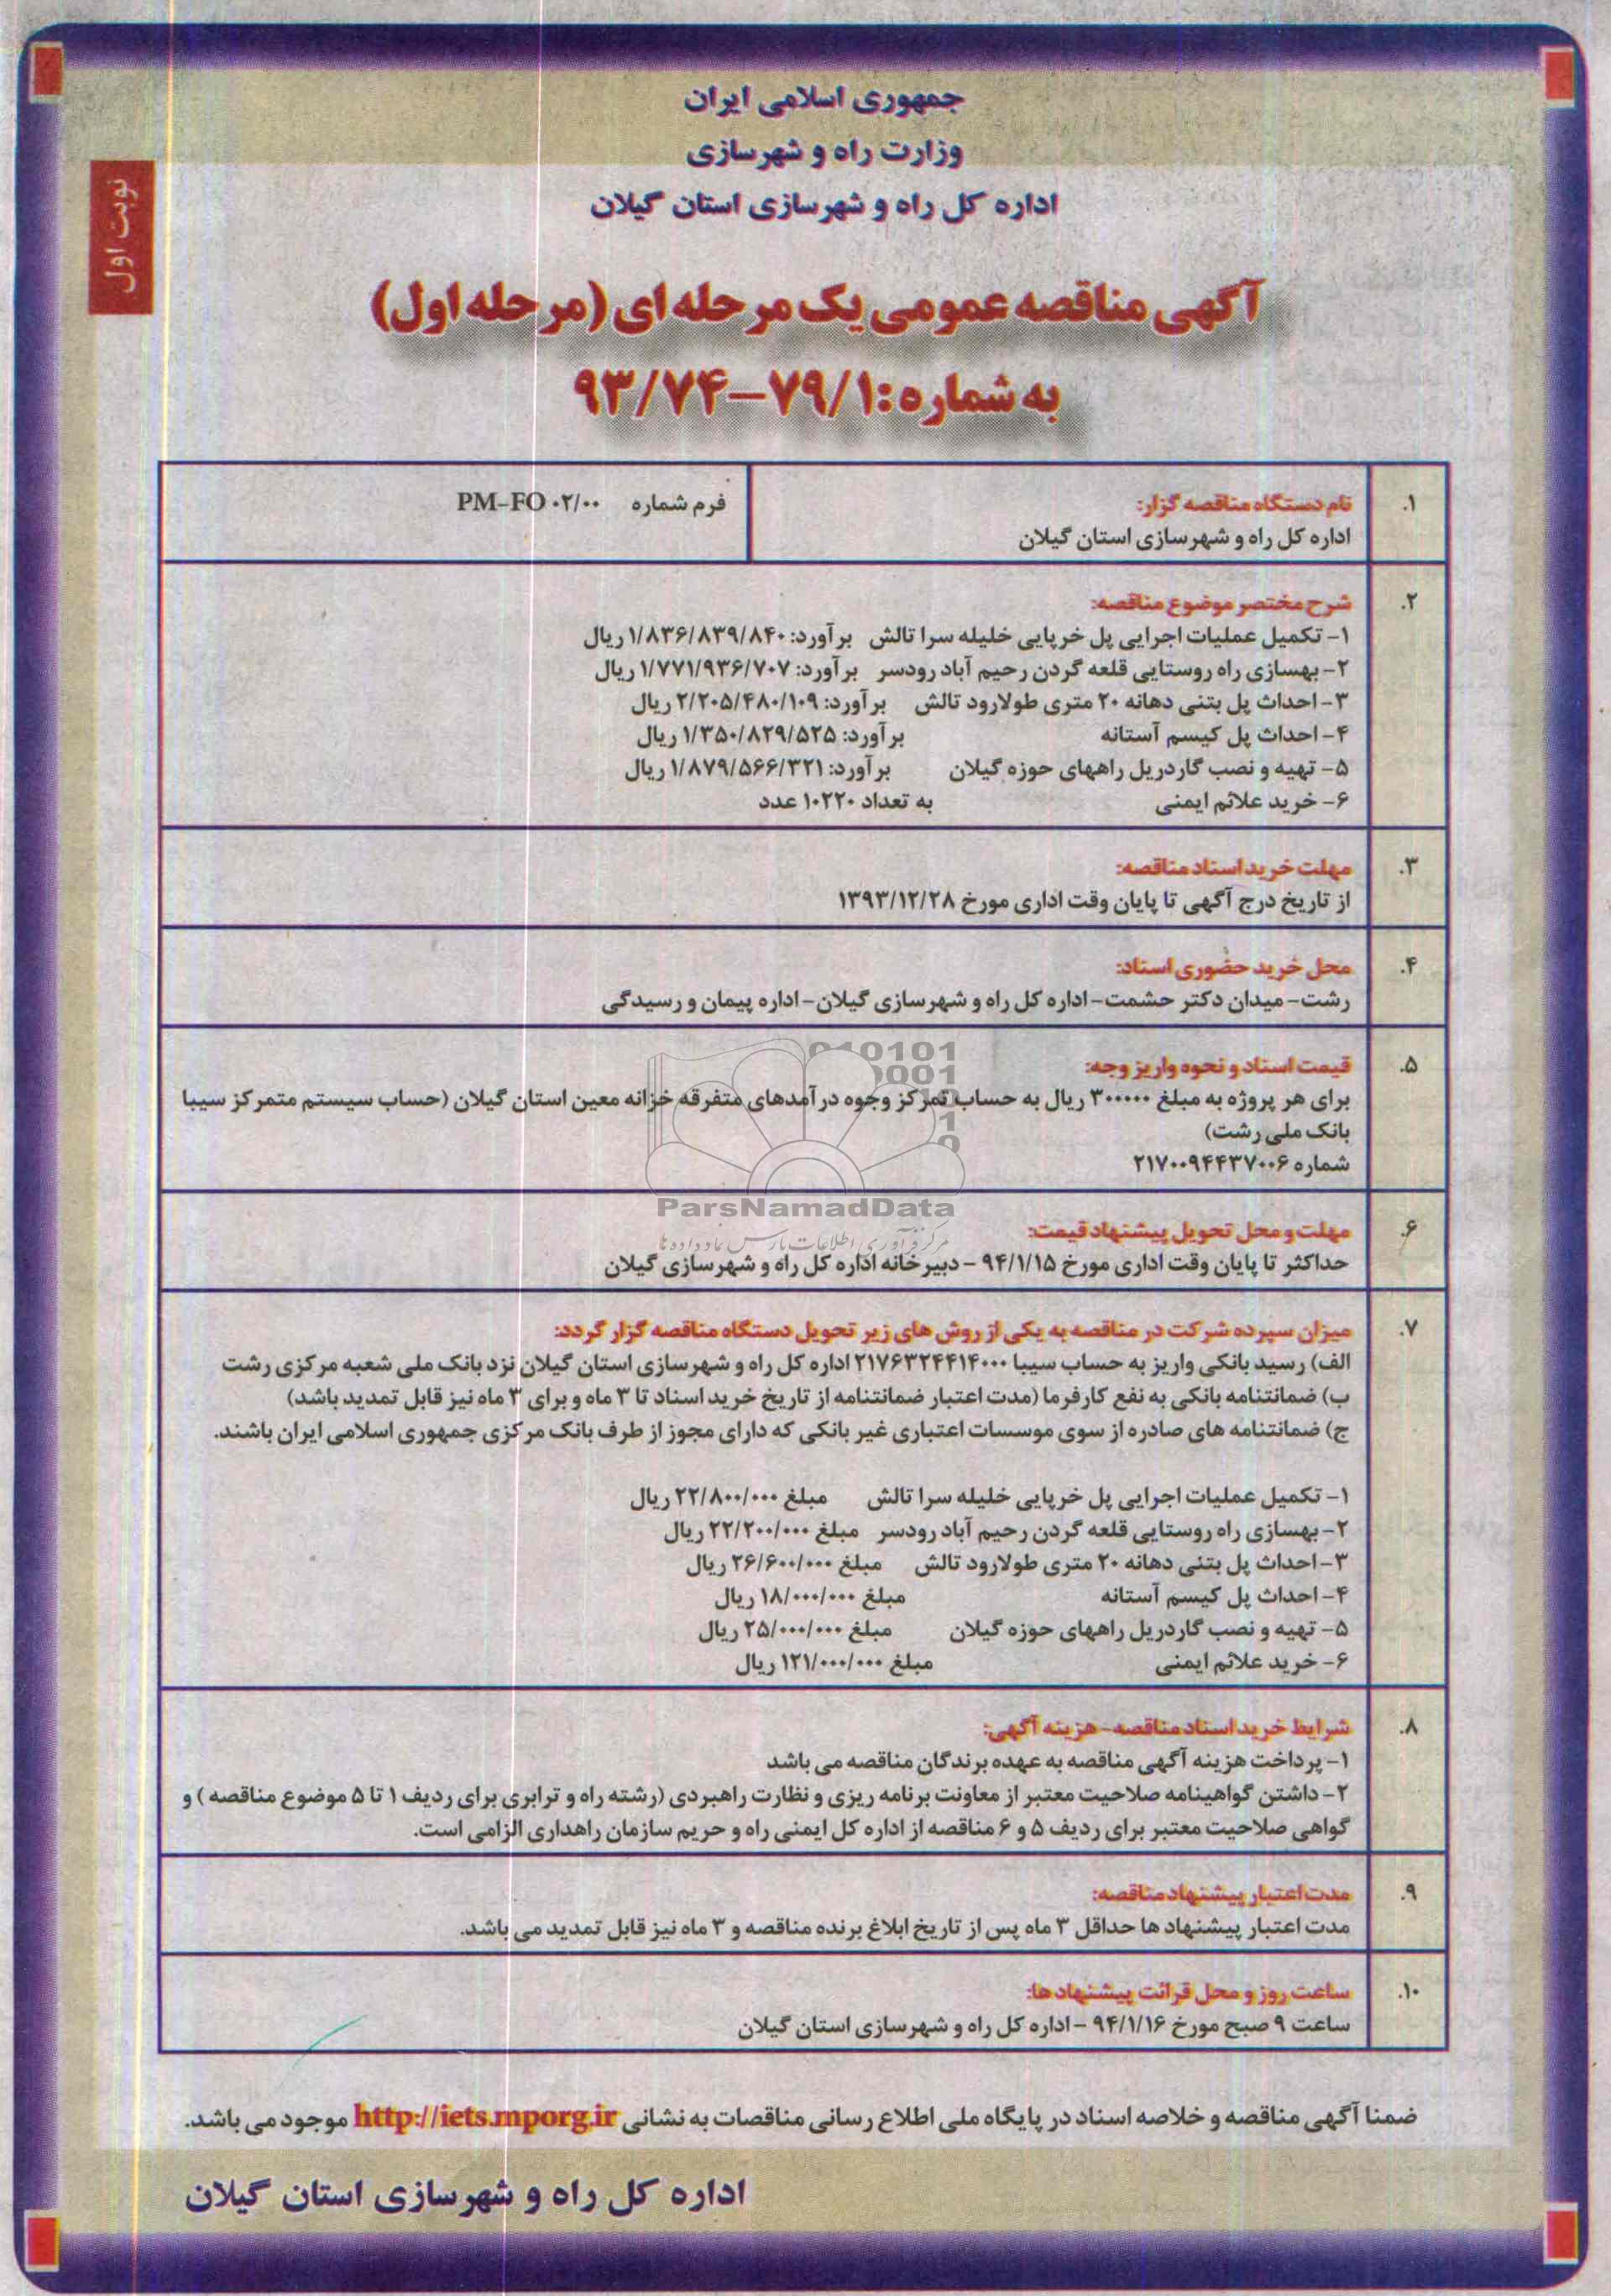 جمهوری اسلامی ایران
وزارت راه و شهرسازی
اداره کل راه و شهرسازی استان گیلان
نوبت اول
آگهی مناقصه عمومی یک مرحله ای (مرحله اول)
به شماره: ۷۹/۱–۹۳/۷۴
۱. نام دستگاه مناقصه گزار:
اداره کل راه و شهرسازی استان گیلان
فرم شماره PM-FO ۰۲/۰۰
۲. شرح مختصر موضوع مناقصه:
۱- تکمیل عملیات اجرایی پل خرپایی خلیله سرا تالش برآورد: ۱/۸۳۶/۸۳۹/۸۴۰ ریال
۲- بهسازی راه روستایی قلعه گردن رحیم آباد رودسر برآورد: ۱/۷۷۱/۹۳۶/۷۰۷ ریال
۳- احداث پل بتنی دهانه ۲۰ متری طولارود تالش برآورد: ۲/۲۰۵/۴۸۰/۱۰۹ ریال
۴- احداث پل کیسم آستانه برآورد: ۱/۳۵۰/۸۲۹/۵۲۵ ریال
۵- تهیه و نصب گاردریل راههای حوزه گیلان برآورد: ۱/۸۷۹/۵۶۶/۳۲۱ ریال
۶- خرید علائم ایمنی به تعداد ۱۰۲۲۰ عدد
۳. مهلت خرید اسناد مناقصه:
از تاریخ درج آگهی تا پایان وقت اداری مورخ ۱۳۹۳/۱۲/۲۸
۴. محل خرید حضوری اسناد:
رشت- میدان دکتر حشمت- اداره کل راه و شهرسازی گیلان- اداره پیمان و رسیدگی
۵. قیمت اسناد و نحوه واریز وجه:
برای هر پروژه به مبلغ ۳۰۰۰۰۰ ریال به حساب تمرکز وجوه درآمدهای متفرقه خزانه معین استان گیلان (حساب سیستم متمرکز سیبا
بانک ملی رشت)
شماره ۲۱۷۰۰۹۴۴۳۷۰۰۶
ParsNamadData
مرکز فرآوری اطلاعات پارس نماد داده ها
۶. مهلت و محل تحویل پیشنهاد قیمت:
حداکثر تا پایان وقت اداری مورخ ۹۴/۱/۱۵ – دبیرخانه اداره کل راه و شهرسازی گیلان
۷. میزان سپرده شرکت در مناقصه به یکی از روش های زیر تحویل دستگاه مناقصه گزار گردد:
الف) رسید بانکی واریز به حساب سیبا ۲۱۷۶۳۲۴۴۱۴۰۰۰ اداره کل راه و شهرسازی استان گیلان نزد بانک ملی شعبه مرکزی رشت
ب) ضمانتنامه بانکی به نفع کارفرما (مدت اعتبار ضمانتنامه از تاریخ خرید اسناد تا ۳ ماه و برای ۳ ماه نیز قابل تمدید باشد)
ج) ضمانتنامه های صادره از سوی موسسات اعتباری غیر بانکی که دارای مجوز از طرف بانک مرکزی جمهوری اسلامی ایران باشند.
۱- تکمیل عملیات اجرایی پل خرپایی خلیله سرا تالش مبلغ ۲۲/۸۰۰/۰۰۰ ریال
۲- بهسازی راه روستایی قلعه گردن رحیم آباد رودسر مبلغ ۲۲/۲۰۰/۰۰۰ ریال
۳- احداث پل بتنی دهانه ۲۰ متری طولارود تالش مبلغ ۲۶/۶۰۰/۰۰۰ ریال
۴- احداث پل کیسم آستانه مبلغ ۱۸/۰۰۰/۰۰۰ ریال
۵- تهیه و نصب گاردریل راههای حوزه گیلان مبلغ ۲۵/۰۰۰/۰۰۰ ریال
۶- خرید علائم ایمنی مبلغ ۱۲۱/۰۰۰/۰۰۰ ریال
۸. شرایط خرید اسناد مناقصه- هزینه آگهی:
۱- پرداخت هزینه آگهی مناقصه به عهده برندگان مناقصه می باشد
۲- داشتن گواهینامه صلاحیت معتبر از معاونت برنامه ریزی و نظارت راهبردی (رشته راه و ترابری برای ردیف ۱ تا ۵ موضوع مناقصه ) و
گواهی صلاحیت معتبر برای ردیف ۵ و ۶ مناقصه از اداره کل ایمنی راه و حریم سازمان راهداری الزامی است.
۹. مدت اعتبار پیشنهاد مناقصه:
مدت اعتبار پیشنهاد ها حداقل ۳ ماه پس از تاریخ ابلاغ برنده مناقصه و ۳ ماه نیز قابل تمدید می باشد.
۱۰. ساعت روز و محل قرائت پیشنهاد ها:
ساعت ۹ صبح مورخ ۹۴/۱/۱۶ – اداره کل راه و شهرسازی استان گیلان
ضمنا آگهی مناقصه و خلاصه اسناد در پایگاه ملی اطلاع رسانی مناقصات به نشانی http://iets.mporg.ir موجود می باشد.
اداره کل راه و شهرسازی استان گیلان